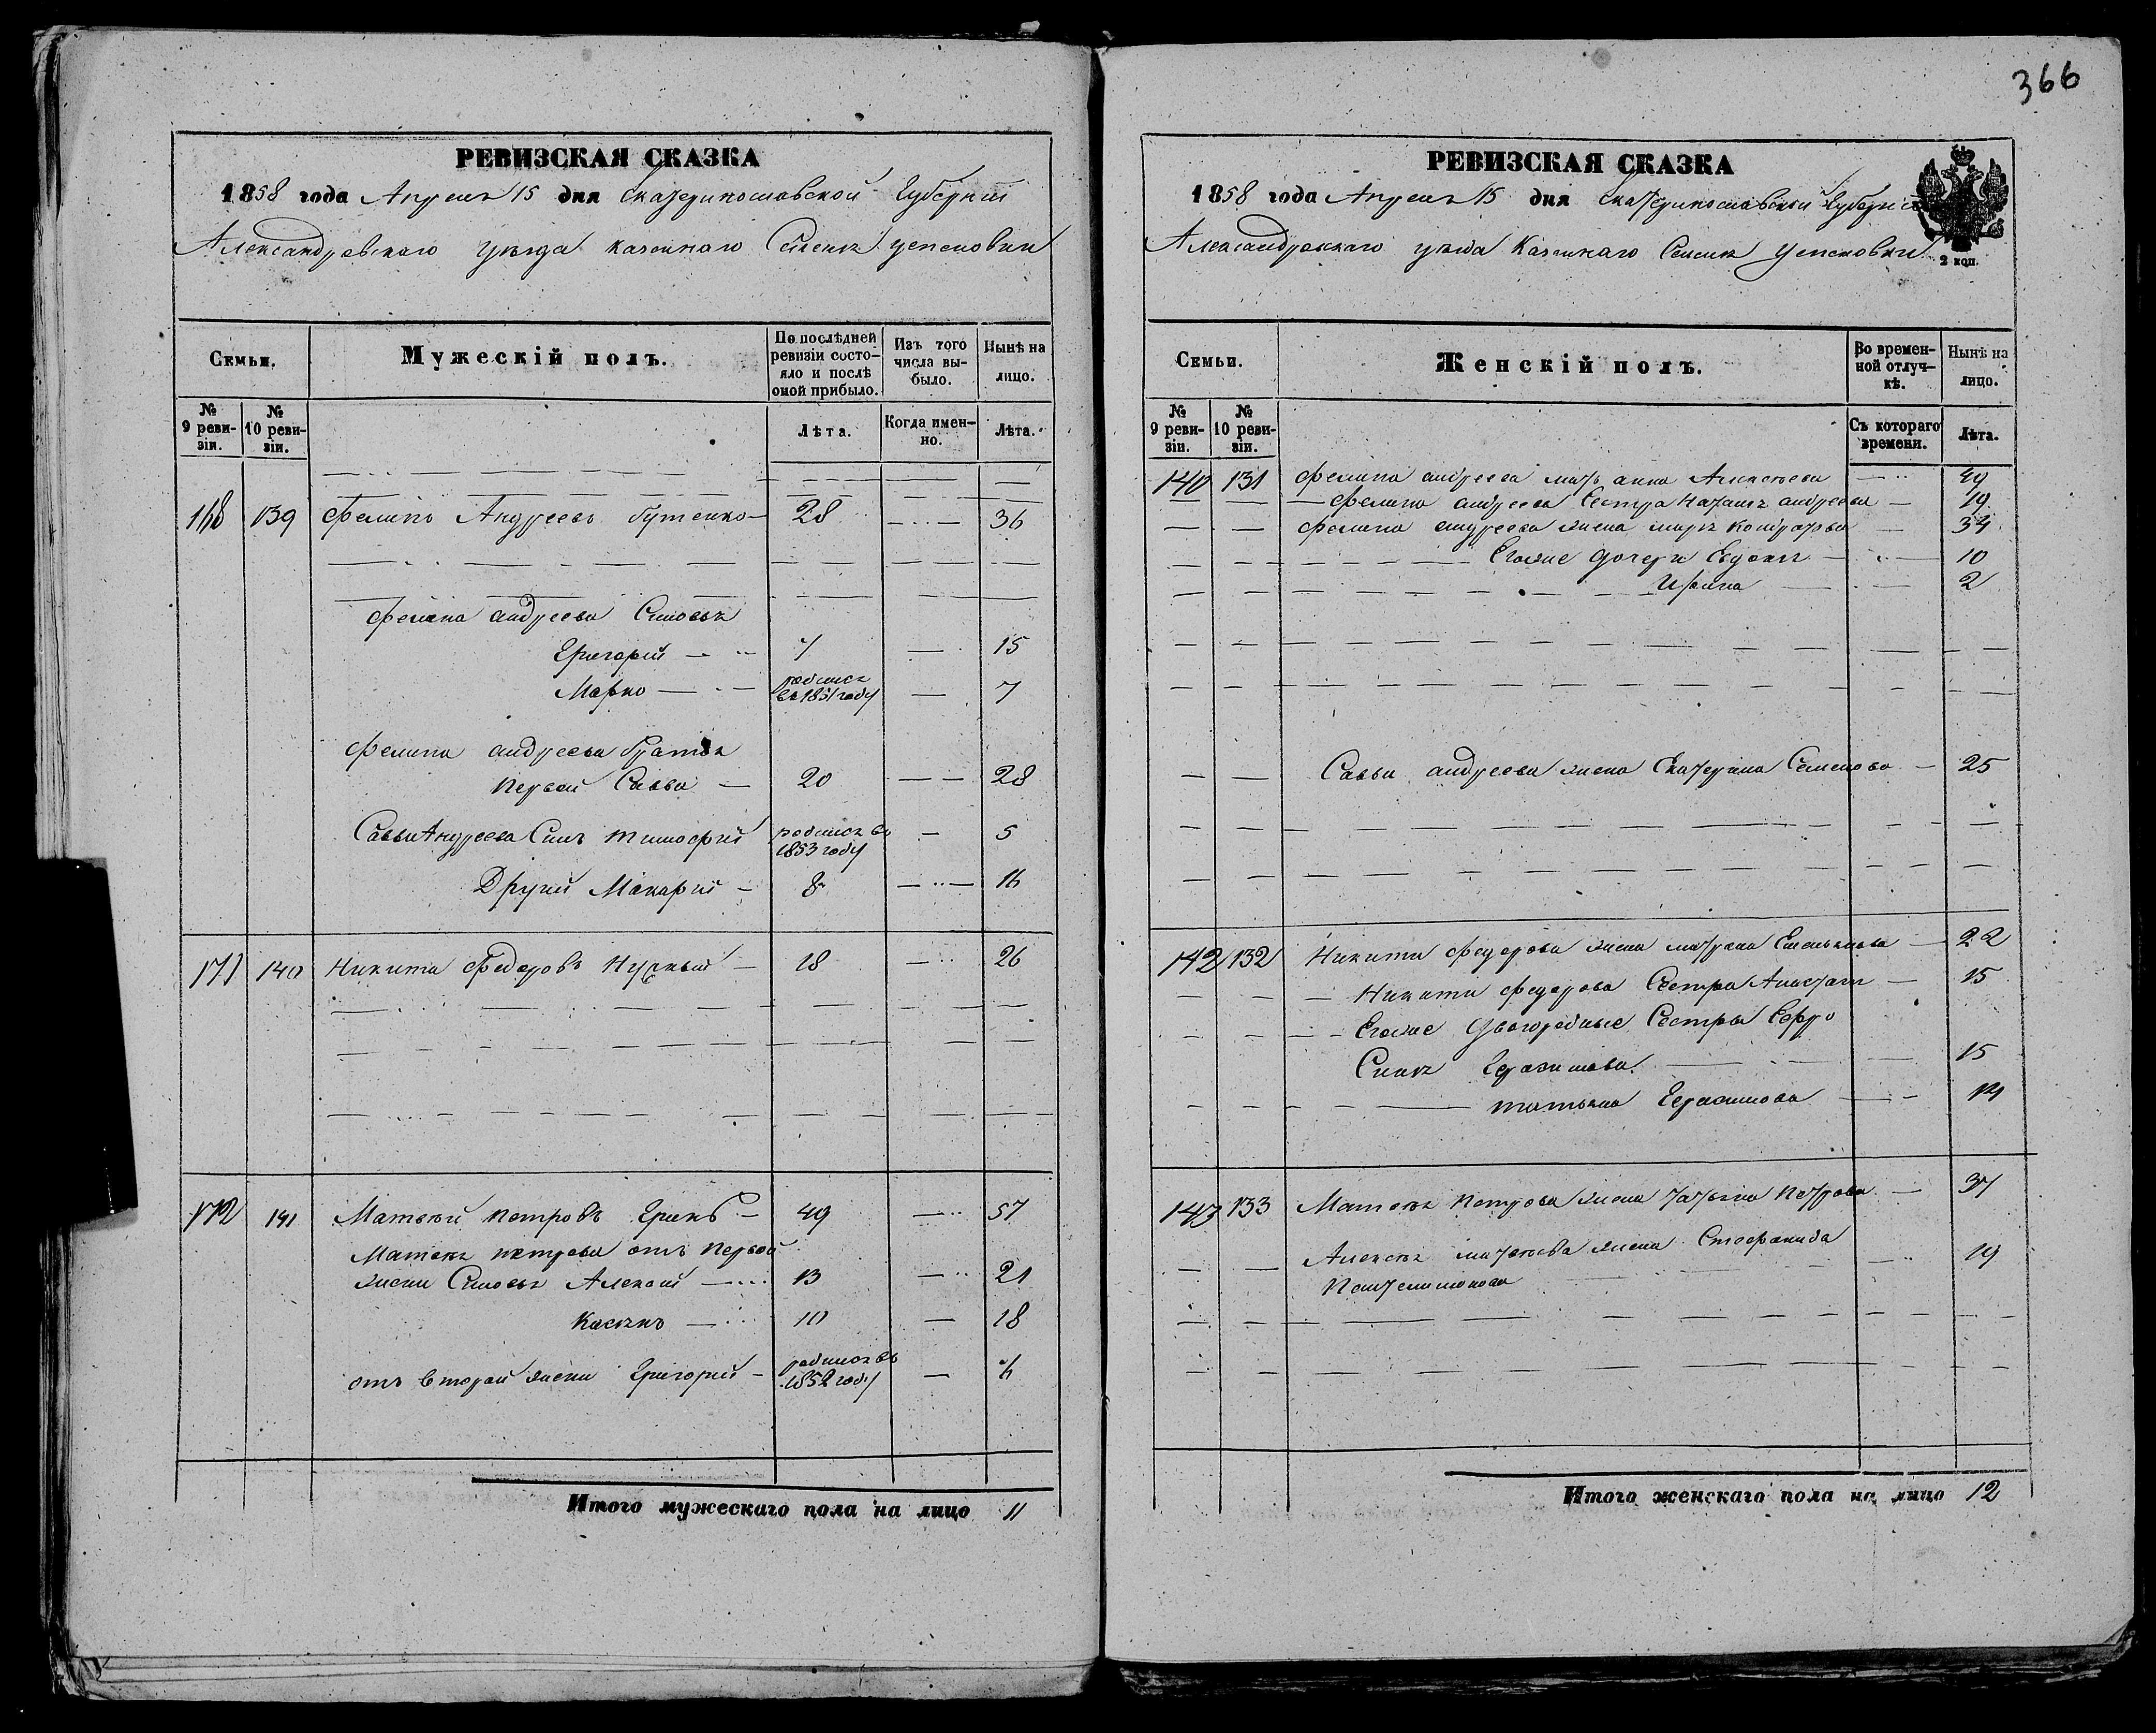 366
РЕВИЗСКАЯ СКАЗКА
1858 года Апреля 15 дня Екатеринославской Губернии
Александровского уезда казеннаго Селения Успеновки
Семьи.
Мужескій полъ.
По послѣдней ревизіи состо-
яло и послѣ оной прибыло.
Изъ того числа вы-
было.
Нынѣ на лицо.
№ 9 реви-
зіи.
№ 10 реви-
зіи.
Лѣта.
Когда имен-
но.
Лѣта.
168 139 Филипъ Андреевъ Гутенко 28 36
Филипа андреева Синовья
Григорий 7 15
Марко родился въ 1851 году 7
Филипа андреева Братья
Первой Савва 20 28
Саввы Андреева Синъ Тимофий родился въ 1853 году 5
Другий Макарий 8 16
171 140 Никита Федоровъ 18 26
172 141 Матвѣй Петровъ 49 57
Матвея петрова отъ первой
жени Синовья Алексей 13 21
Касянъ 10 18
отъ второй жени Григорий родился въ 1852 году 6
Итого мужескаго пола на лицо 11
РЕВИЗСКАЯ СКАЗКА
1858 года Апреля 15 дня Екатеринославской Губернии
Александровскаго уезда Казеннаго Селения Успеновки
2 коп.
Семьи.
Женскій полъ.
Во времен-
ной отлуч-
кѣ.
Нынѣ на лицо.
№ 9 реви-
зіи.
№ 10 реви-
зіи.
Съ котораго времени.
Лѣта.
140 131 Филипа андреева мать анна Алексеева 49
Филипа андреева Сестра Наталия андреева 19
Филипа андреева жена Кондратьева 34
Егоже дочери Евдокия 10
Ирина 2
Саввы андреева жена Екатерина Семенова 25
142 132 Никити федорова жена матрена Емельянова 22
Никити федорова Сестра Анастасия 15
Егоже двогородные Сестры Ефро
Синия Геразимова 15
татьяна Герасимова 14
143 133 Матвея Петрова жена татьяна Петрова 37
Алексея матвеева жена Стефанида 19
Пантелимонова
Итого женскаго пола на лицо 12